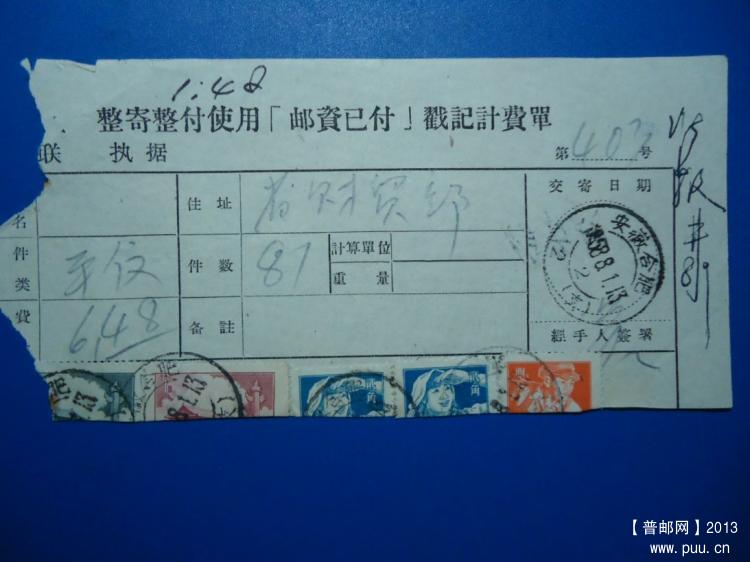 1:48
整寄整付使用「邮資已付」戳記計費單
联 执据
第403号
名
住址 省财贸部
交寄日期
件类 平信
件数 87
計算單位
重量
費 6.48
备註
經手人簽署
安徽合肥
1958.1.13
8.1.13
貳角
貳角
【普邮网】2013
www.puu.cn